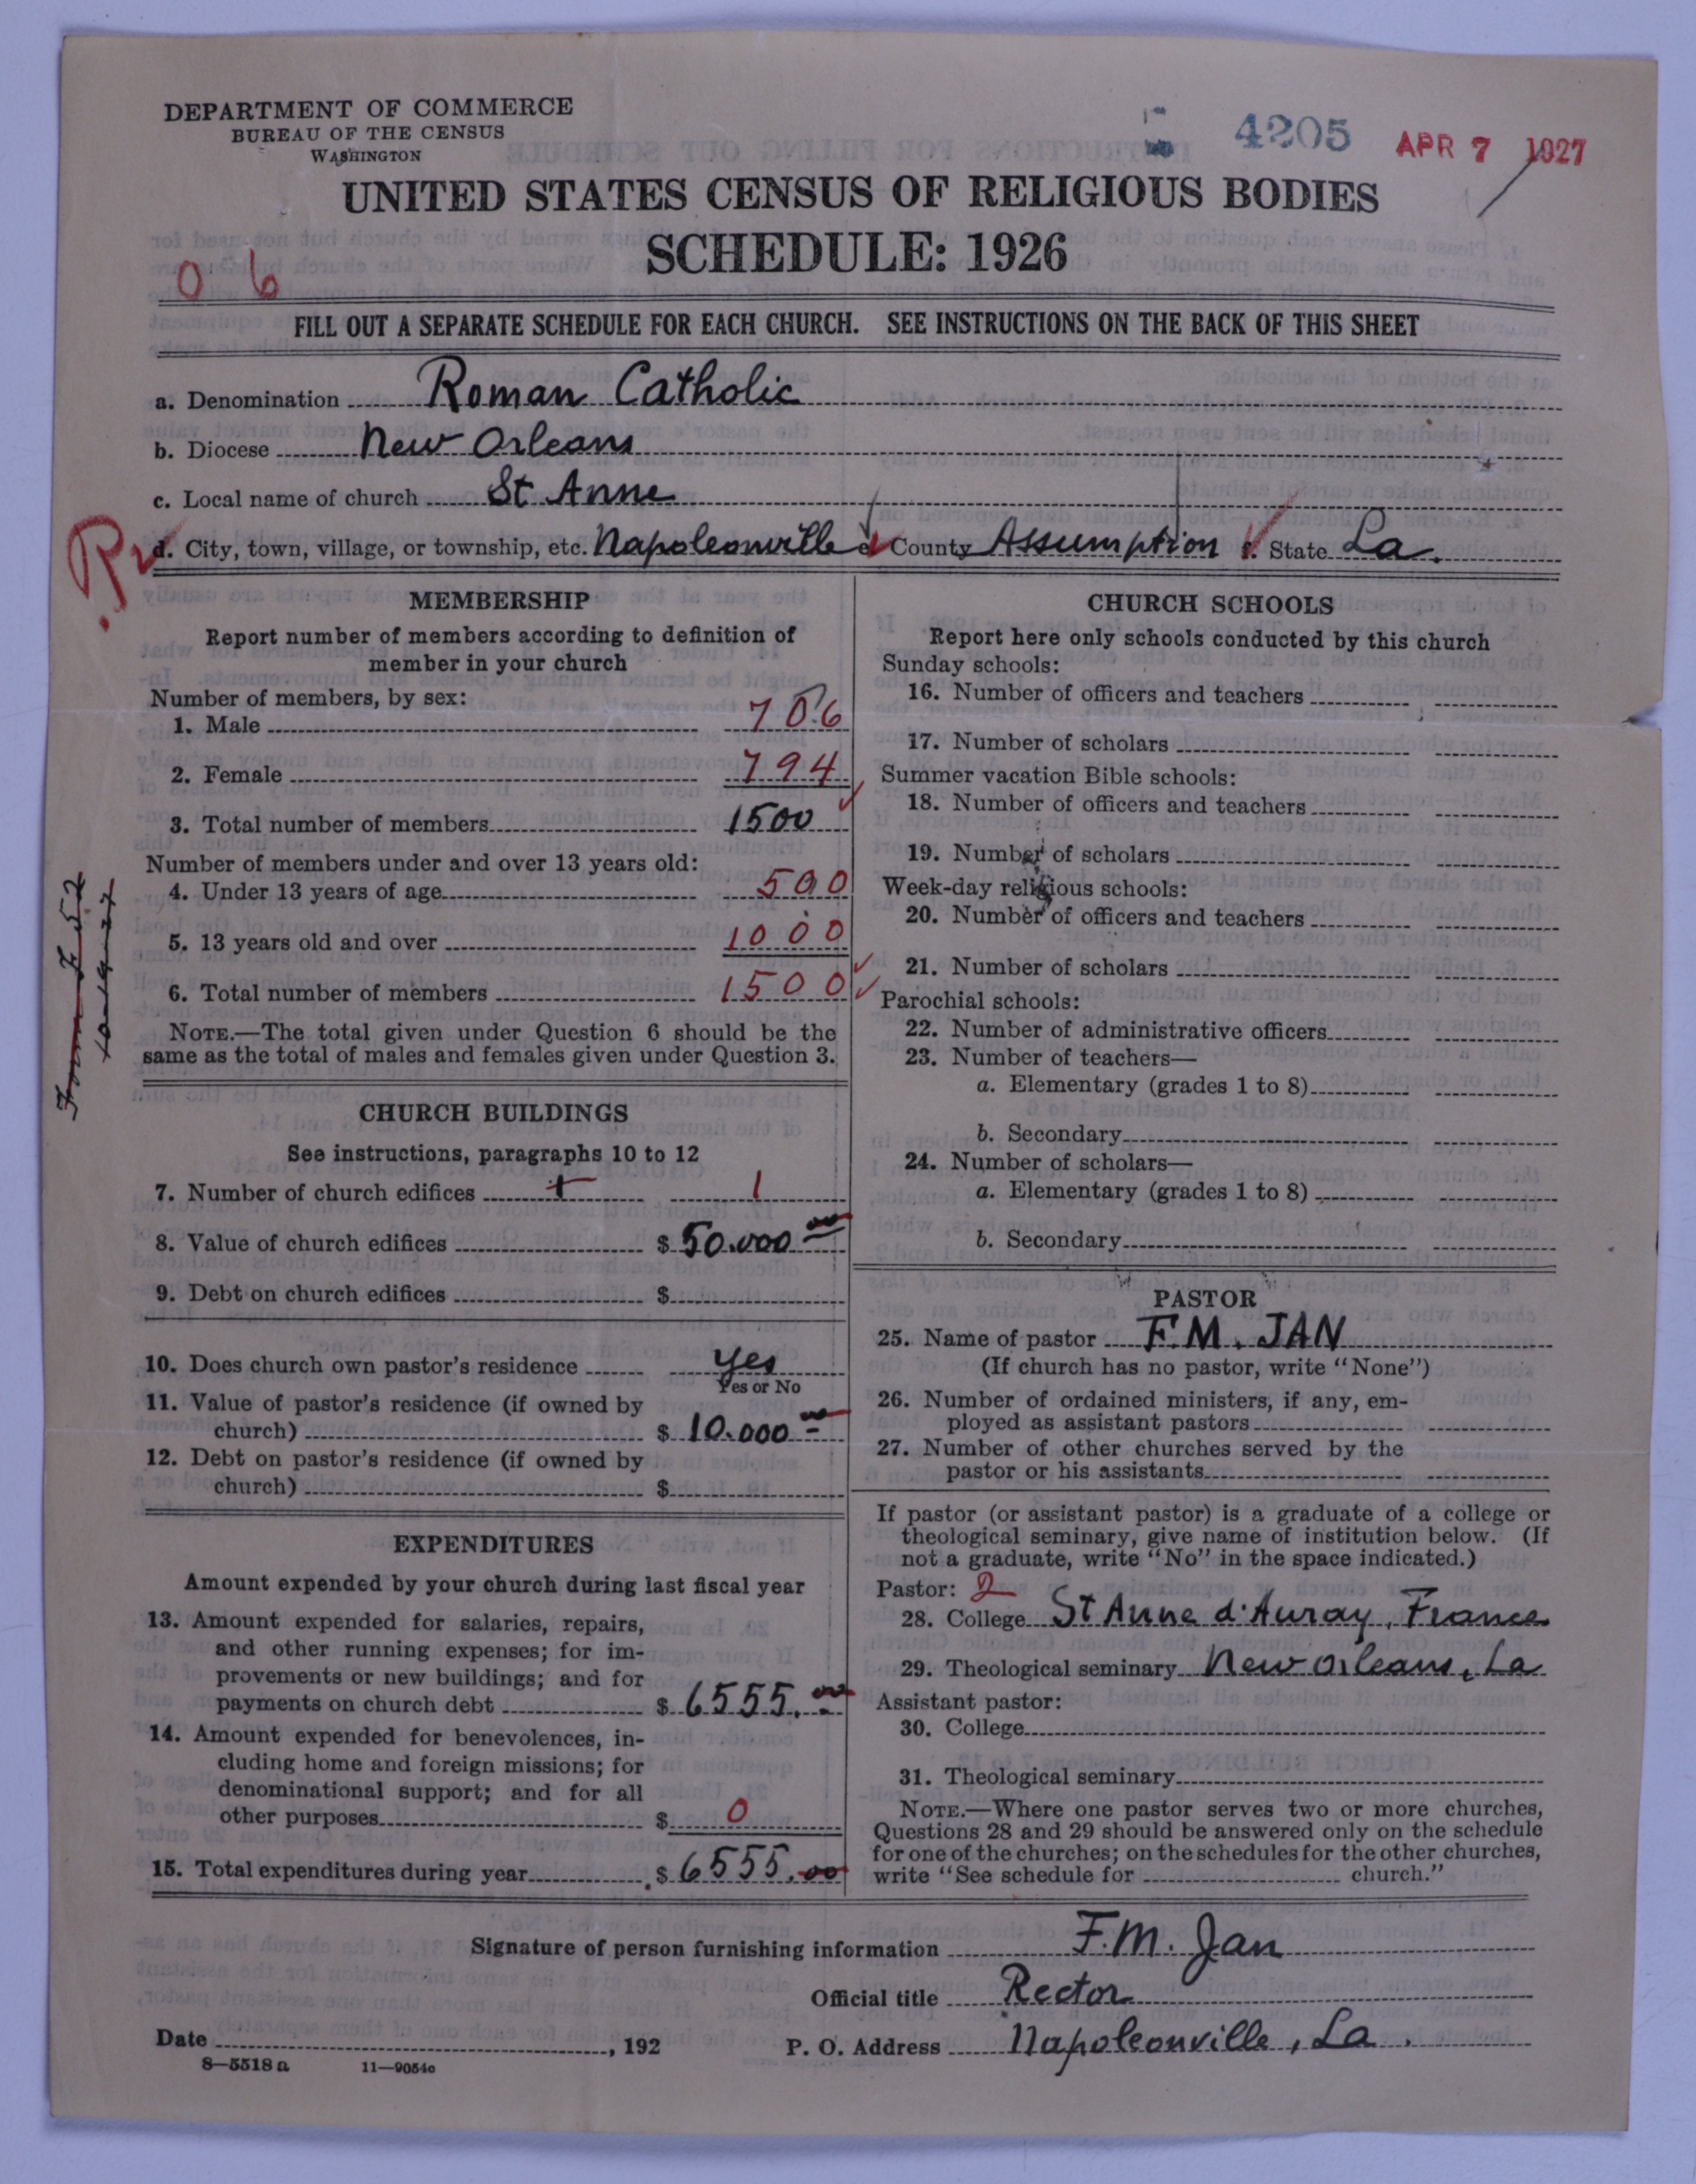 DEPARTMENT OF COMMERCE
BUREAU OF THE CENSUS
WASHINGTON
4205
APR 7 1927
UNITED STATES CENSUS OF RELIGIOUS BODIES
SCHEDULE: 1926
0 6
FILL OUT A SEPARATE SCHEDULE FOR EACH CHURCH. SEE INSTRUCTIONS ON THE BACK OF THIS SHEET
a. Denomination Roman Catholic
b. Diocese New Orleans
c. Local name of church St Anne
d. City, town, village, or township, etc. Napoleonville e. County Assumption f. State La.
MEMBERSHIP
Report number of members according to definition of
member in your church
Number of members, by sex:
1. Male 706
2. Female 794
3. Total number of members 1500
Number of members under and over 13 years old:
4. Under 13 years of age 500
5. 13 years old and over 1000
6. Total number of members 1500
NOTE.—The total given under Question 6 should be the
same as the total of males and females given under Question 3.
Form I 52
10-19-27
CHURCH BUILDINGS
See instructions, paragraphs 10 to 12
7. Number of church edifices 1 1
8. Value of church edifices $ 50.000 00
9. Debt on church edifices $
10. Does church own pastor's residence yes
Yes or No
11. Value of pastor's residence (if owned by
church) $ 10.000 00
12. Debt on pastor's residence (if owned by
church) $
EXPENDITURES
Amount expended by your church during last fiscal year
13. Amount expended for salaries, repairs,
and other running expenses; for im-
provements or new buildings; and for
payments on church debt $ 6555.00
14. Amount expended for benevolences, in-
cluding home and foreign missions; for
denominational support; and for all
other purposes $ 0
15. Total expenditures during year $ 6555.00
CHURCH SCHOOLS
Report here only schools conducted by this church
Sunday schools:
16. Number of officers and teachers
17. Number of scholars
Summer vacation Bible schools:
18. Number of officers and teachers
19. Number of scholars
Week-day religious schools:
20. Number of officers and teachers
21. Number of scholars
Parochial schools:
22. Number of administrative officers
23. Number of teachers—
a. Elementary (grades 1 to 8)
b. Secondary
24. Number of scholars—
a. Elementary (grades 1 to 8)
b. Secondary
PASTOR
25. Name of pastor F.M. JAN
(If church has no pastor, write "None")
26. Number of ordained ministers, if any, em-
ployed as assistant pastors
27. Number of other churches served by the
pastor or his assistants
If pastor (or assistant pastor) is a graduate of a college or
theological seminary, give name of institution below. (If
not a graduate, write "No" in the space indicated.)
Pastor: 2
28. College St Anne d'Auray, France
29. Theological seminary New Orleans, La
Assistant pastor:
30. College
31. Theological seminary
NOTE.—Where one pastor serves two or more churches,
Questions 28 and 29 should be answered only on the schedule
for one of the churches; on the schedules for the other churches,
write "See schedule for church."
Signature of person furnishing information F.M. Jan
Official title Rector
Date , 192 P. O. Address Napoleonville, La.
8—5518 a 11—9054c